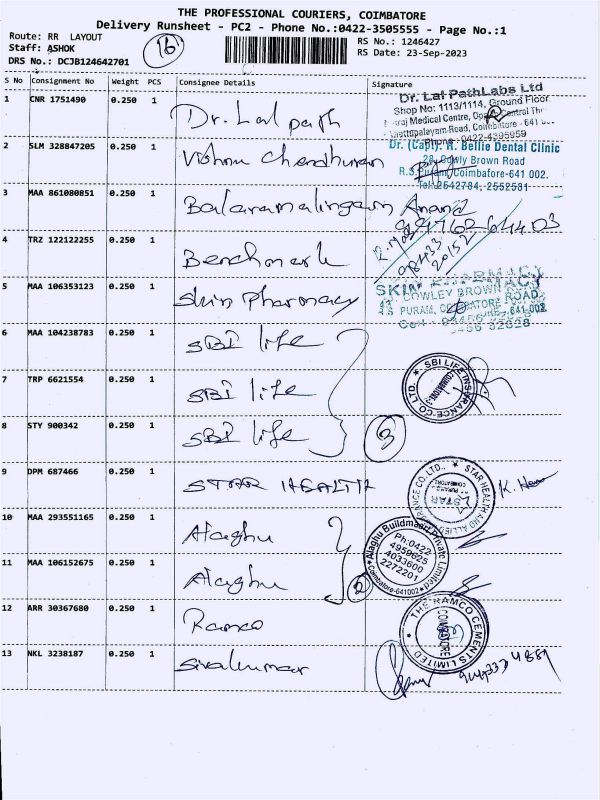 THE PROFESSIONAL COURIERS, COIMBATORE
Delivery Runsheet - PC2 - Phone No.:0422-3505555 - Page No.:1
Route: RR LAYOUT
Staff: ASHOK
DRS No.: DCJB124642701
16
RS No.: 1246427
RS Date: 23-Sep-2023
S No Consignment No Weight PCS Consignee Details Signature
1 CNR 1751490 0.250 1 Dr. Lal path
Dr. Lal PathLabs Ltd
Shop No: 1113/1114, Ground Floor
Medical Centre, Central
Road, Coimbatore - 641
Phone: 0422-4395959
2 SLM 328847205 0.250 1 Vishnu Chandhuran
Dr. (Capt). R. Bellie Dental Clinic
28, Cowly Brown Road
R.S.Puram, Coimbatore-641 002.
Tel: 2542784, 2552581
3 MAA 861080851 0.250 1 Balaramalingam Anand
4 TRZ 122122255 0.250 1 Benchmark
98433
20152
5 MAA 106353123 0.250 1 Skin Pharmacy
SKIN PHARMACY
COWLEY BROWN ROAD
R.S PURAM, COIMBATORE - 641 002
6 MAA 104238783 0.250 1 SBI life
7 TRP 6621554 0.250 1 SBI life
SBI LIFE INSURANCE CO. LTD.
8 STY 900342 0.250 1 SBI life
3
9 DPM 687466 0.250 1 STAR HEALTH
STAR HEALTH AND ALLIED INSURANCE CO. LTD.,
10 MAA 293551165 0.250 1 Alaghu
11 MAA 106152675 0.250 1 Alaghu
2
Alaghu Buildmaart Private Limited
Ph:0422
4959625
4033600
2272201
Coimbatore-641002
12 ARR 30367680 0.250 1 Ramco
THE RAMCO CEMENTS LIMITED
COIMBATORE
13 NKL 3238187 0.250 1 Sivakumar